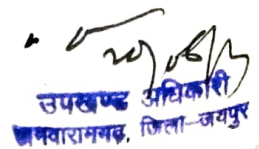 उपखण्ड अधिकारी
जमवारामगढ़, जिला-जयपुर